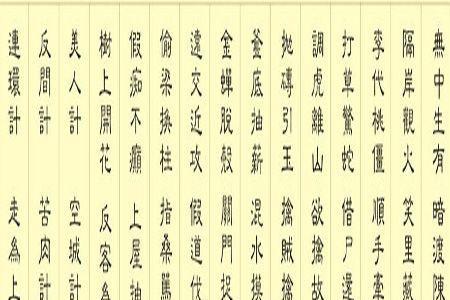 無中生有 暗渡陳
隔岸觀火 笑里藏
李代桃僵 順手牽
打草驚蛇 借尸還
調虎離山 欲擒故
拋磚引玉 擒賊擒
釜底抽薪 混水摸
金蟬脫殼 關門捉
遠交近攻 假道伐
偷梁換柱 指桑罵
假痴不癲 上屋抽
樹上開花 反客為
美人計 空城計
反間計 苦肉計
連環計 走為上